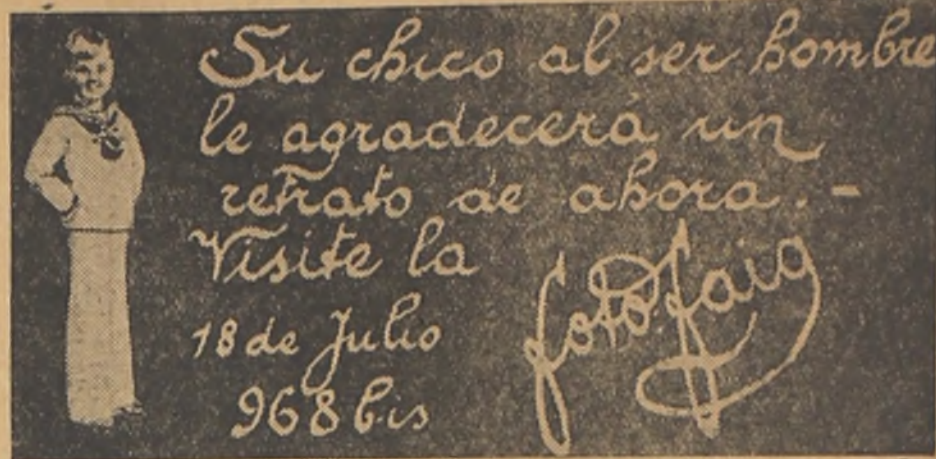 Su chico al ser hombre
le agradecerá un
retrato de ahora.-
Visite la
foto faig
18 de Julio
968 bis